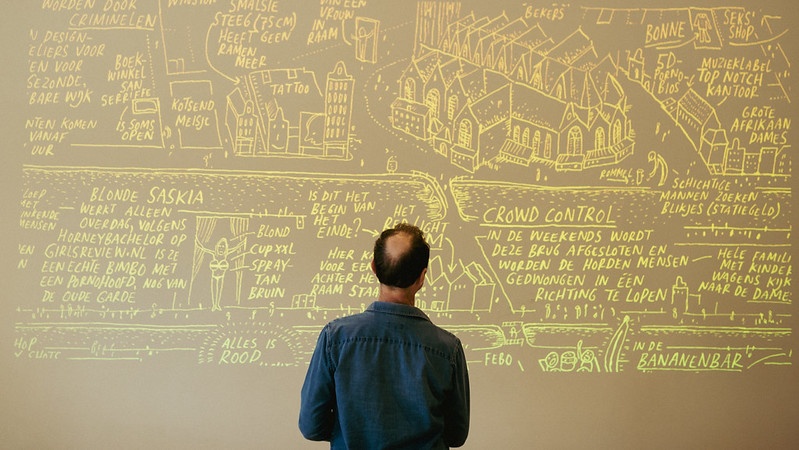 WORDEN DOOR
CRIMINELEN
N DESIGN-
ELIERS VOOR
EN VOOR
GEZONDE,
BARE WIJK
NTEN KOMEN
VANAF
UUR
BOEK-
WINKEL
SAN
SERIFFE
IS SOMS
OPEN
WINSTON
KOTSEND
MEISJE
SMALSTE
STEEG (75CM)
HEEFT GEEN
RAMEN
MEER
TATTOO
EEN
VROUW
IN
RAAM
"BEKERS"
BONNE
SEKS-
SHOP
5D-
PORNO-
BIOS
MUZIEKLABEL
TOP NOTCH
KANTOOR
GROTE
AFRIKAAN
DAMES
ROMMEL
SCHICHTIGE
MANNEN ZOEKEN
BLIKJES (STATIEGELD)
MET
MENSEN
BLONDE SASKIA
WERKT ALLEEN
OVERDAG, VOLGENS
HORNEYBACHELOR OP
GIRLSREVIEW.NL IS ZE
EEN ECHTE BIMBO MET
EEN PORNOHOOFD, NOG VAN
DE OUDE GARDE
BLOND
CUP XXL
SPRAY-
TAN
BRUIN
IS DIT HET
BEGIN VAN
HET
EINDE?
HET
LICHT
HIER K
VOOR EE
ACHTER HE
RAAM STAA
CROWD CONTROL
IN DE WEEKENDS WORDT
DEZE BRUG AFGESLOTEN EN
WORDEN DE HORDEN MENSEN
GEDWONGEN IN ÉÉN
RICHTING TE LOPEN
HELE FAMILI
MET KINDER
WAGENS KIJK
NAAR DE DAME
HOP
ALLES IS
ROOD
FEBO
IN DE
BANANENBAR